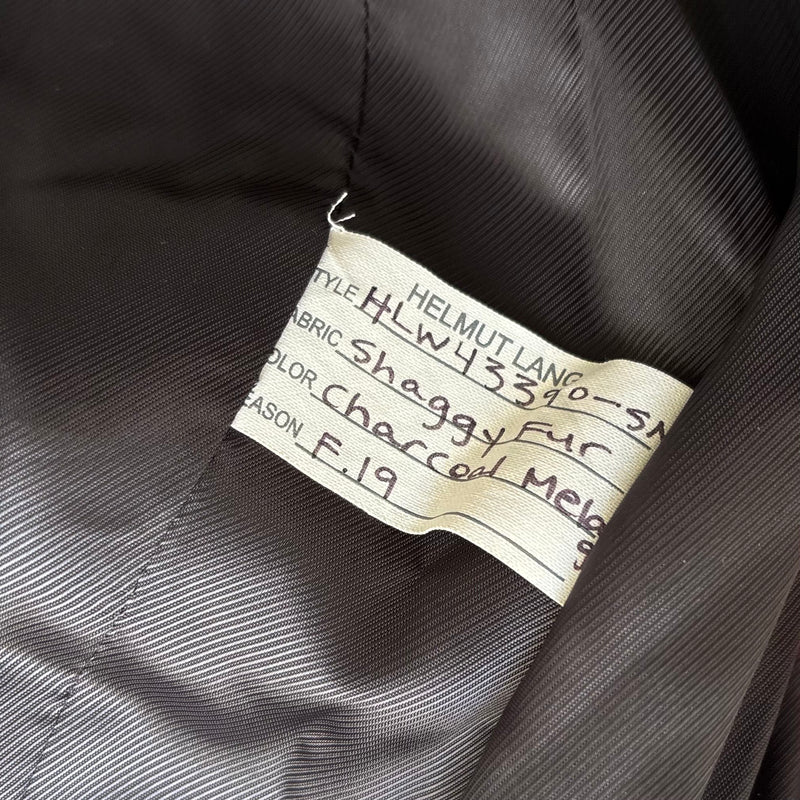 HELMUT LANG
TYLE HLW43390-SM
ABRIC Shaggy Fur
OLOR Charcoal Mela
EASON F.19